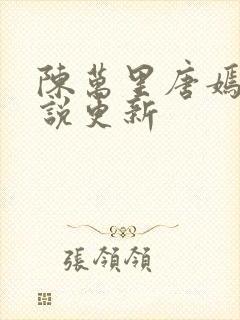 陳萬里唐嫣
說更新
張領領